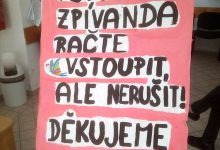 ZPÍVANDA
RAČTE
VSTOUPIT,
ALE NERUŠIT!
DĚKUJEME